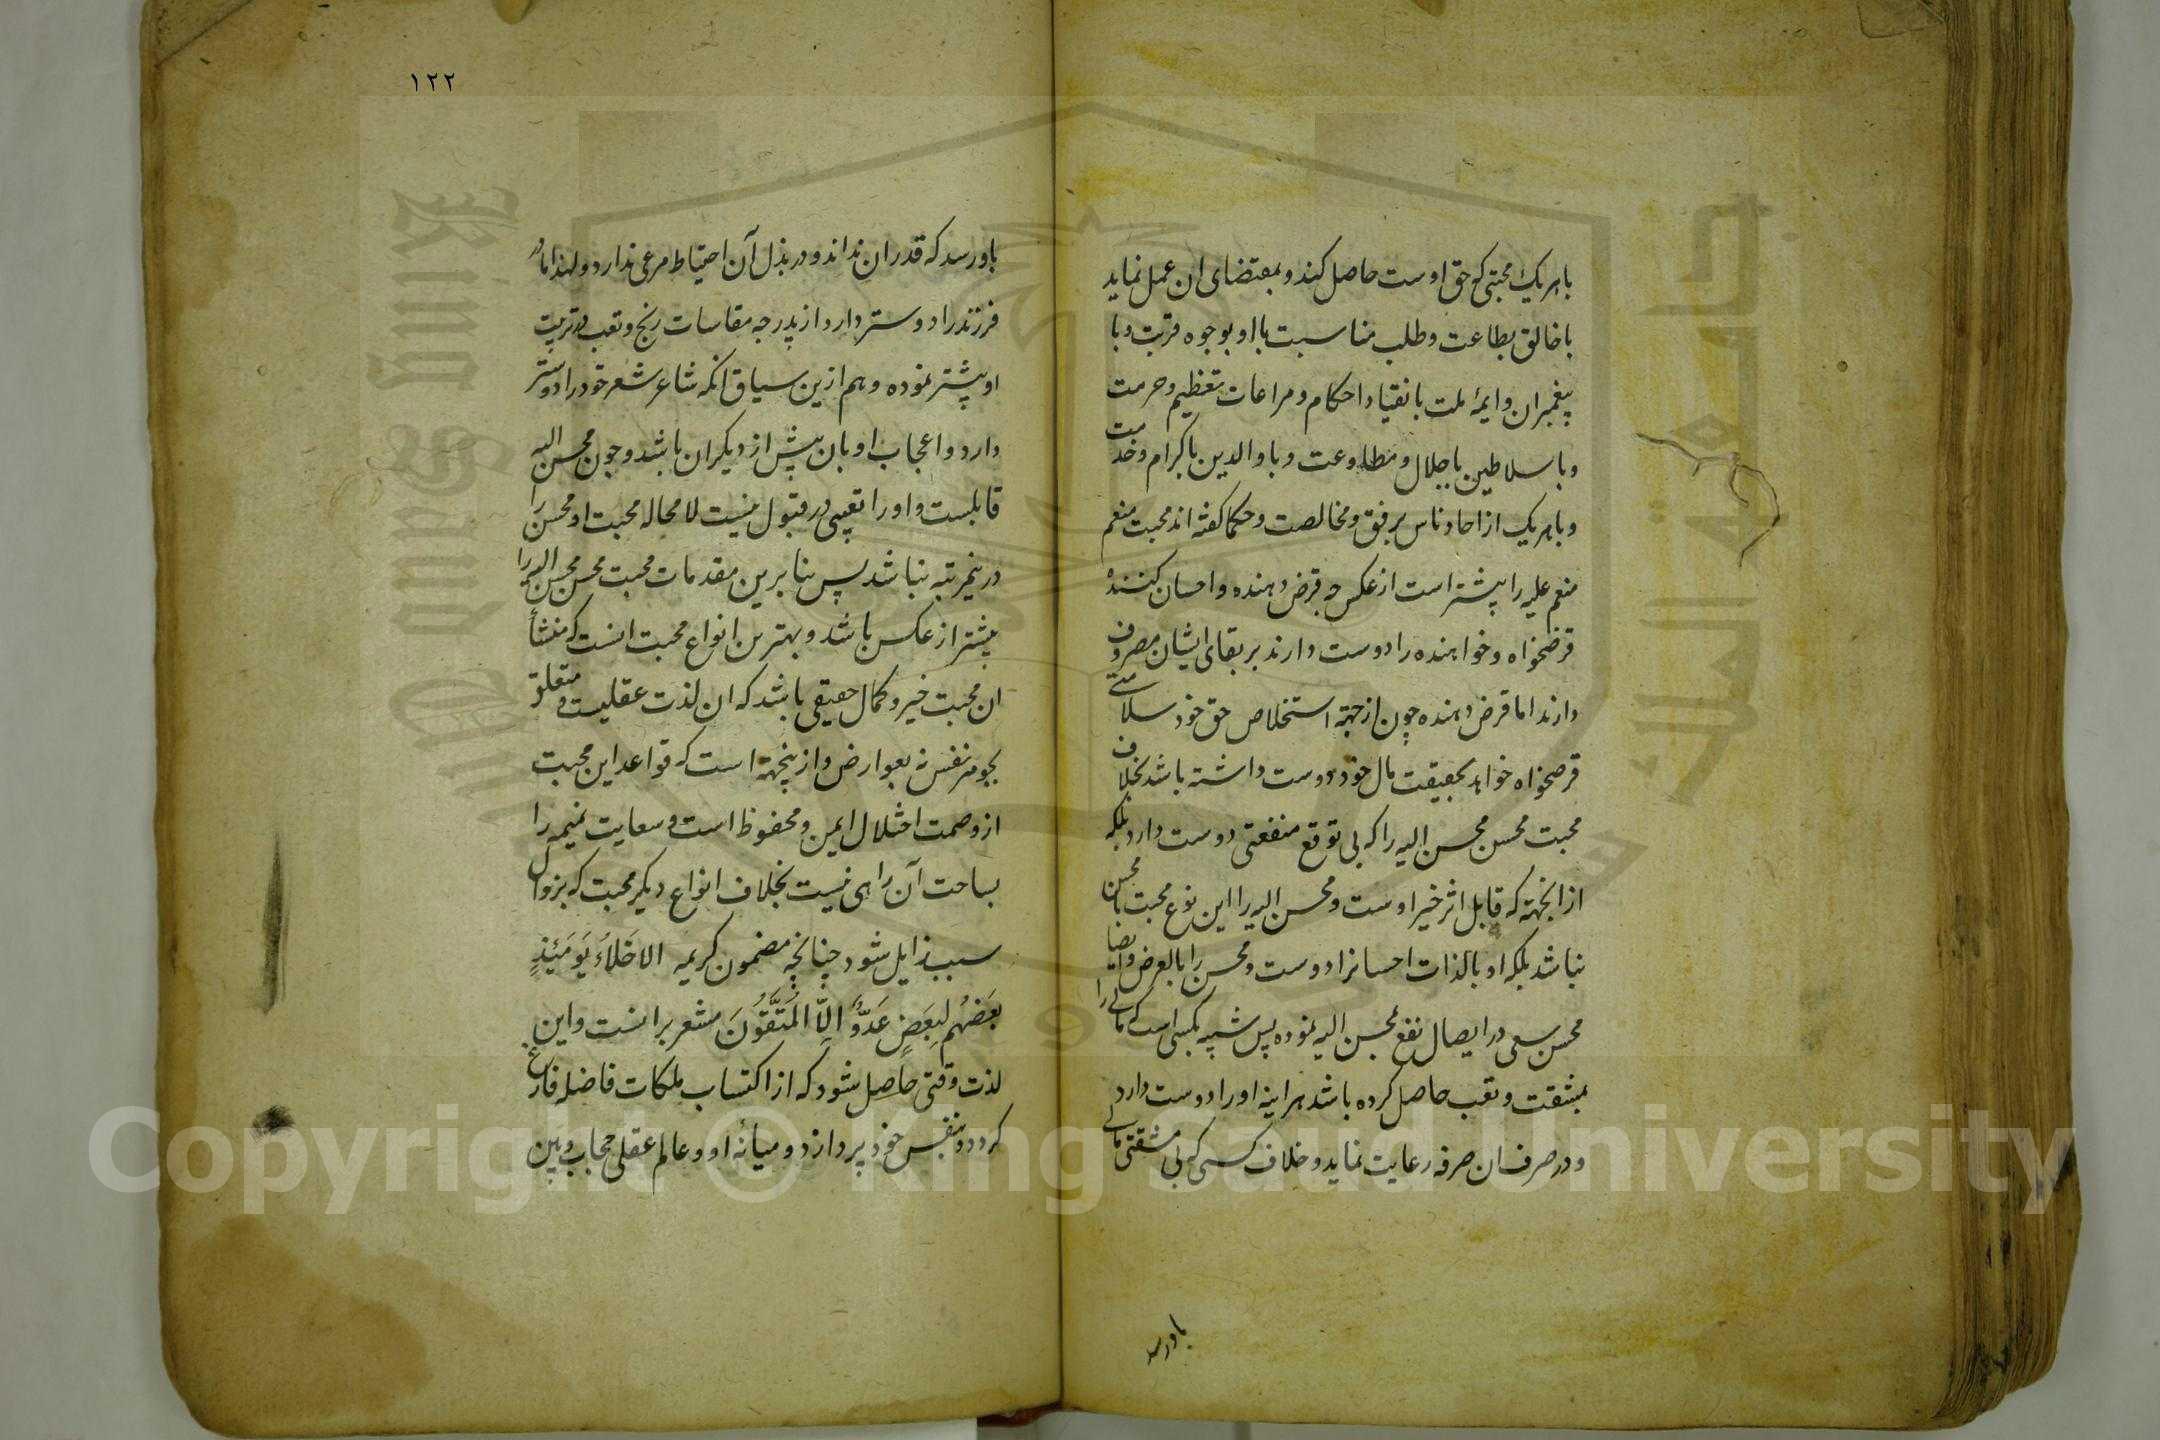 با هر یک محبتی که حق اوست حاصل کند و بمقتضای ان عمل نماید
با خالق بطاعت و طلب مناسبت با او بوجوه قربت و با
پیغمبران و ایمهٔ ملت بانقیاد احکام و مراعات تعظیم و حرمت
و با سلاطین باجلال و مطاوعت و با والدین باکرام و خدمت
و با هر یک از احاد ناس برفق و مخالصت و حکما گفته اند محبت منعم
منعم علیه را پیشتر است از عکس چه قرض دهنده و احسان کننده
قرضخواه و خواهنده را دوست دارند بر بقای ایشان مصروف
دارند اما قرض دهنده چون از جهة استخلاص حق خود سلامتی
قرضخواه خواهد بحقیقت مال خود دوست داشته باشد بخلاف
محبت محسن محسن الیه را که بی توقع منفعتی دوست دارد بلکه
از انجهة که قابل اثر خیر اوست و محسن الیه را این نوع محبت با محسن
نباشد بلکه او بالذات احسانرا دوست و محسن را بالعرض و ایضا
محسن سعی در ایصال نفع بمحسن الیه نموده پس شبیه بکسی است که مالی را
بمشقت و تعب حاصل کرده باشد هر اینه او را دوست دارد
و در صرف ان صرفه رعایت نماید و خلاف کسی که بی مشقتی مالی
باورسد
١٢٢
باو رسد که قدر ان نداند و در بذل آن احتیاط مرعی ندارد و لهذا مادر
فرزند را دوستر دارد از پدر چه مقاسات رنج و تعب در تربیت
او پیشتر نموده و هم ازین سیاق انکه شاعر شعر خود را دوستر
دارد و اعجاب او بان پیش از دیکران باشد و چون محسن الیه
قابلست و او را تعبی در قبول نیست لا محاله محبت او محسن را
درینمرتبه نباشد پس بنا برین مقدمات محبت محسن محسن الیه را
پیشتر از عکس باشد و بهترین انواع محبت انست که منشأ
ان محبت خیر و کمال حقیقی باشد که ان لذت عقلیست و متعلق
بجوهر نفس نه بعوارض و ازینجهة است که قواعد این محبت
از وصمت اختلال ایمن و محفوظ است و سعایت نمیمه را
بساحت آن راهی نیست بخلاف انواع دیکر محبت که بزوال
سبب زایل شود چنانچه مضمون کریمه الاخلاء یومئذٍ
بعضهم لبعضٍ عدوٌ الّا المتقون مشعر برانست و این
لذت وقتی حاصل شود که از اکتساب ملکات فاضله فارغ
کردد و بنفس خود پردازد و میانهٔ او و عالم عقلی حجاب و بین
Copyright © King Saud University